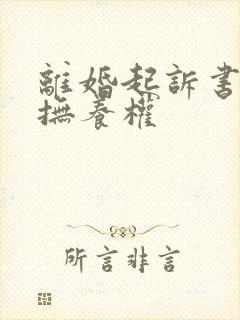 離婚起訴書
撫養權
所言非言